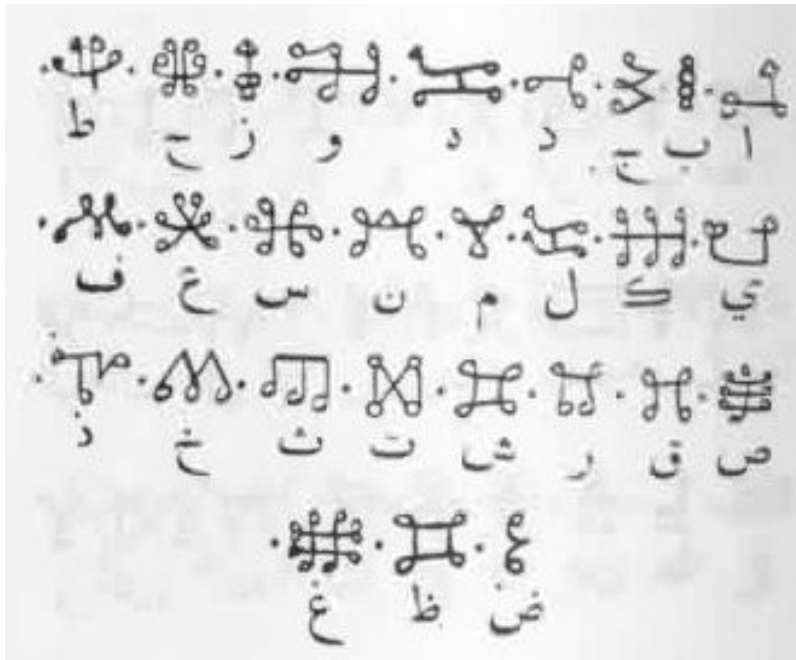 ا ب ج د ه و ز ح ط
ي ك ل م ن س ع ف
ص ق ر ش ت ث خ ذ
ض ظ غ